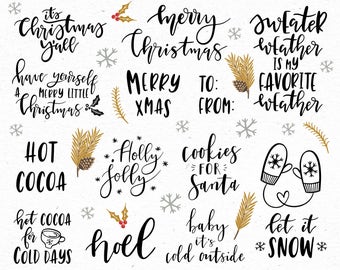 it's
Christmas
y'all
merry
Christmas
sweater
weather
is my
favorite
weather
have yourself
a merry little
Christmas
Merry
Xmas
To:
From:
Hot
Cocoa
Holly
Jolly
cookies
for
Santa
hot cocoa
for
cold days
noel
baby
it's
cold outside
let it
snow